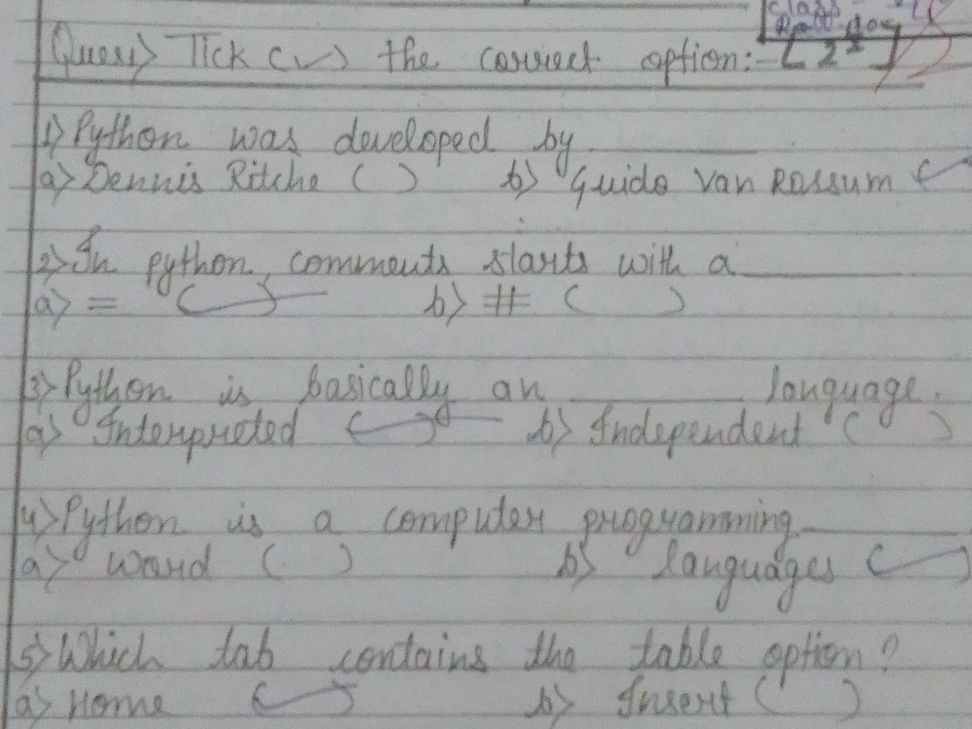 Ques1> Tick (✓) the correct option:-
1> Python was developed by ______
a> Dennis Ritche ( ) b> Guido Van Rossum (✓
2> In python, comments starts with a ______
a> = (✓) b> # ( )
3> Python is basically an ______ language.
a> Interpreted (✓) b> Independent ( )
4> Python is a computer programming ______
a> Word ( ) b> languages (✓)
5> Which tab contains the table option?
a> Home (✓) b> Insert ( )